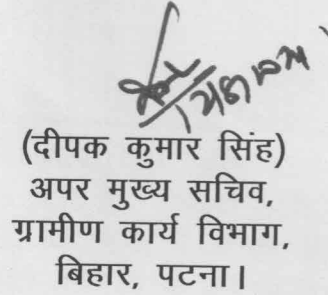 (दीपक कुमार सिंह)
अपर मुख्य सचिव,
ग्रामीण कार्य विभाग,
बिहार, पटना।